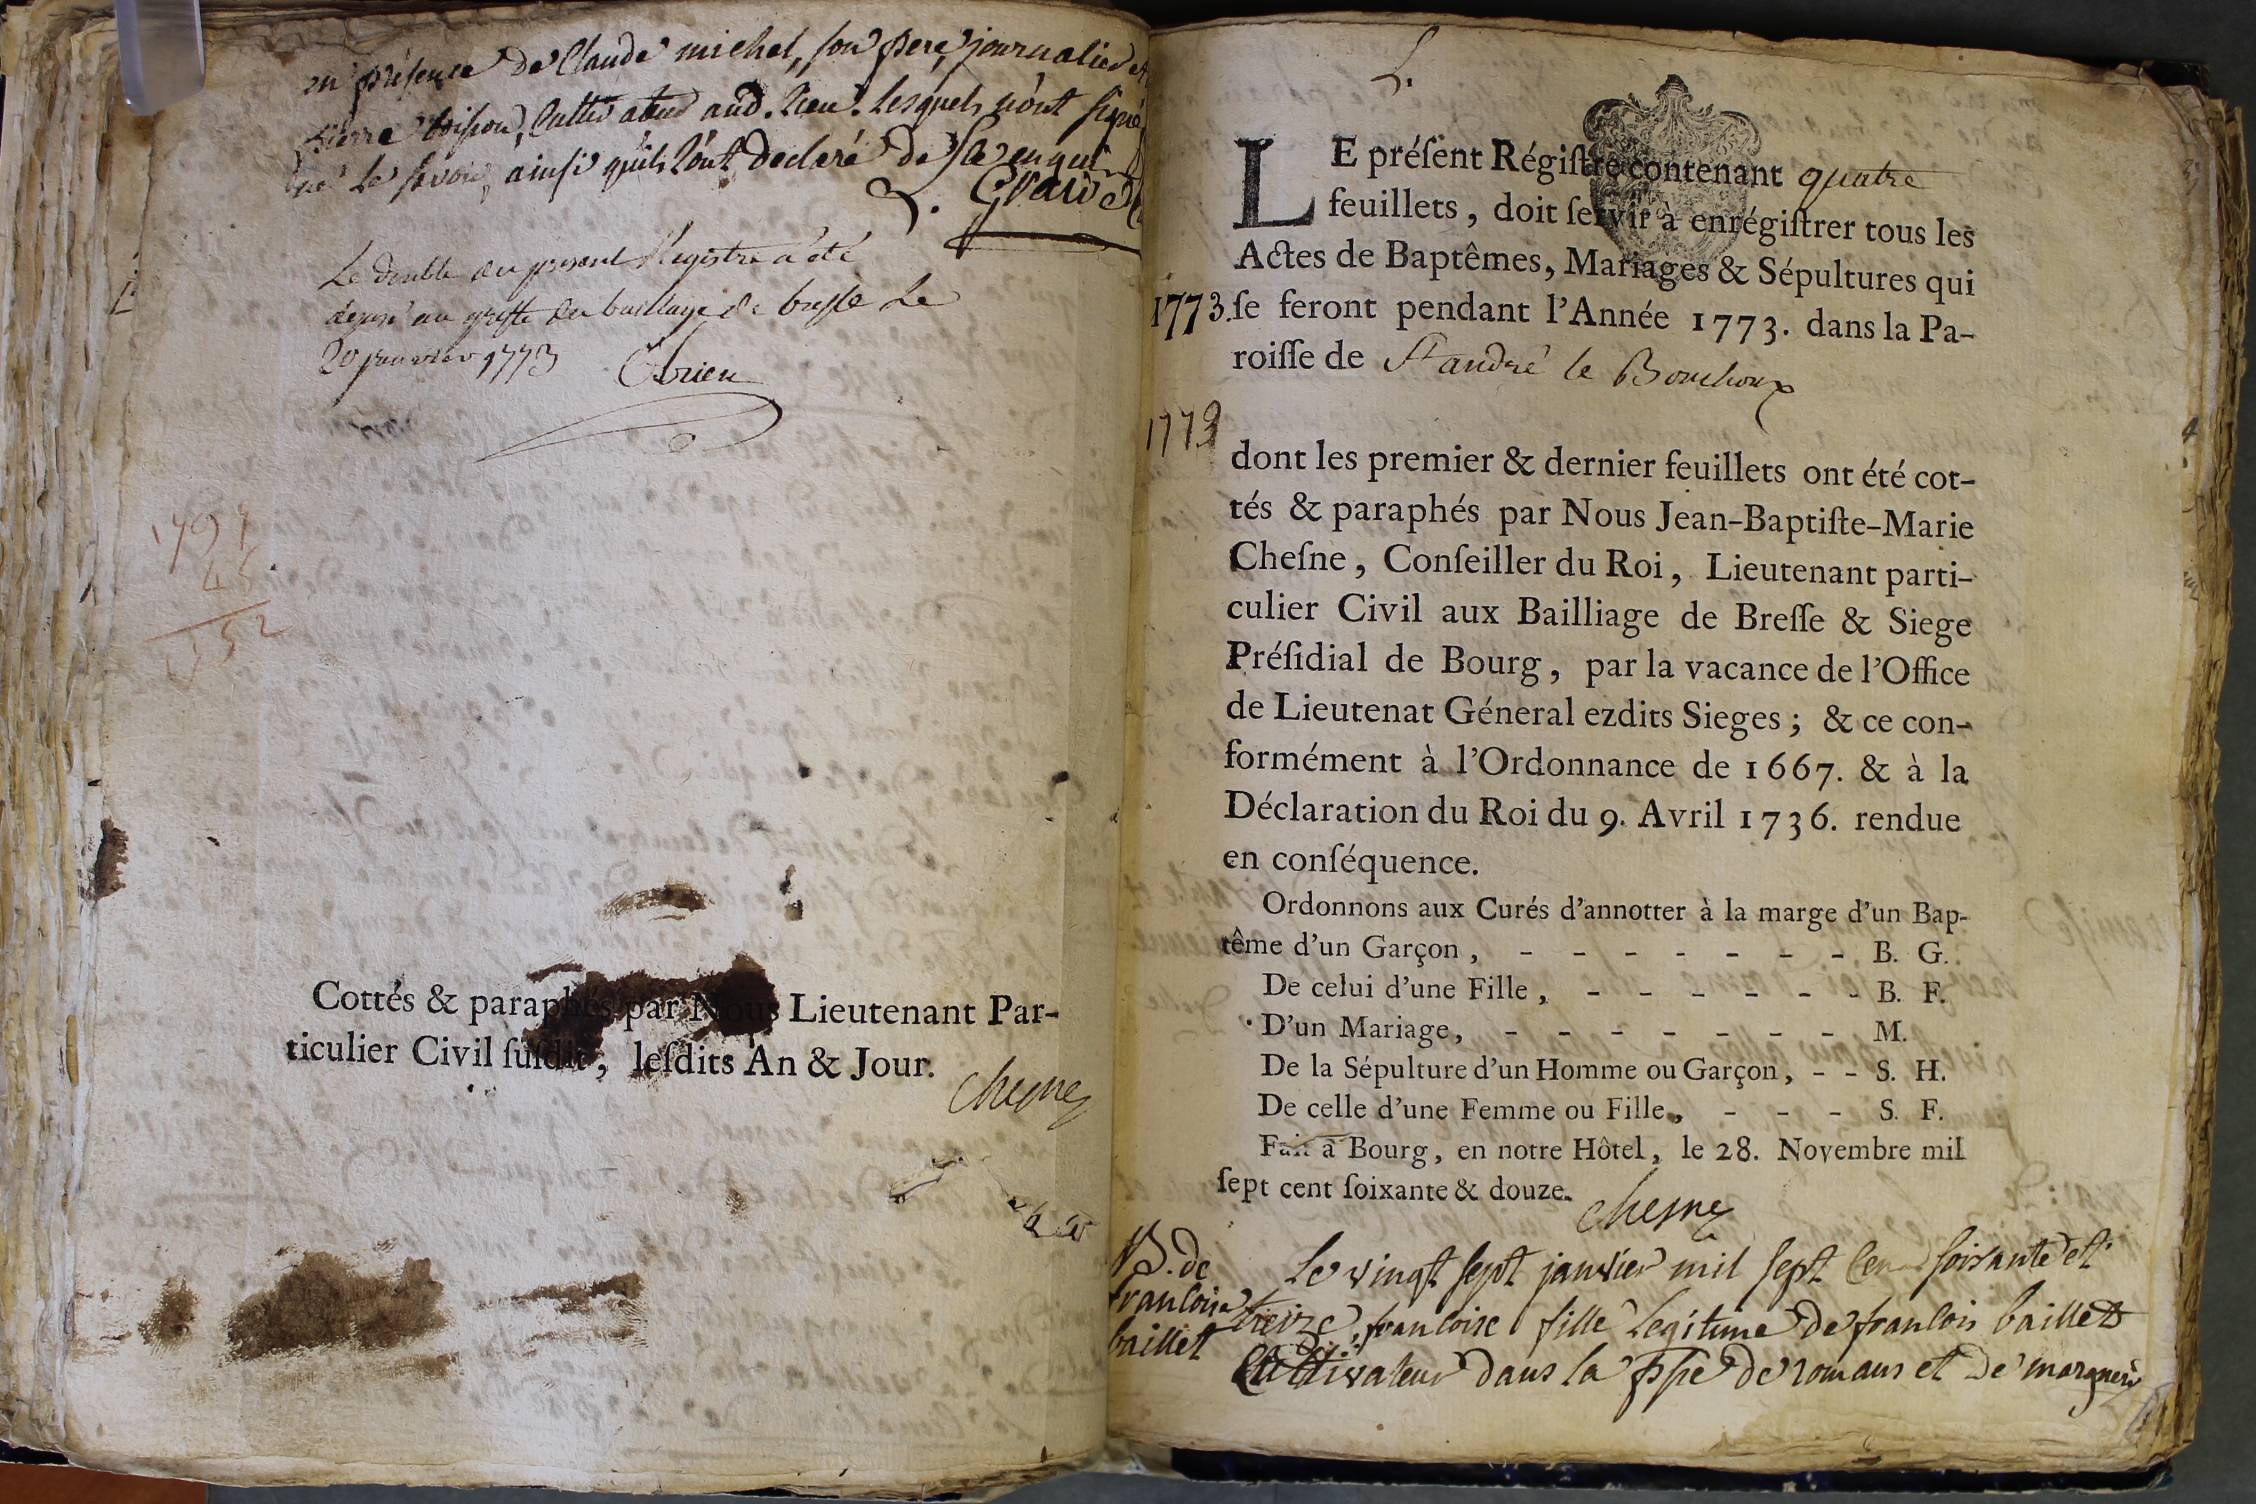 en présence de Claude michel, son pere, journalier et
pierre boisson, cultivateur aud. lieu. lesquels n'ont signé
ne le savoir, ainsi qu'ils l'ont declaré de ce enquis
Le double du present Registre a été
deposé au greffe du bailliage de bresse le
20 janvier 1773
L
Cottés & paraphés par Nous Lieutenant Par-
ticulier Civil ſuſdit, leſdits An & Jour.
Chesne
L.
LE préſent Régiſtre contenant quatre
feuillets, doit ſervir à enrégiſtrer tous les
Actes de Baptêmes, Mariages & Sépultures qui
1773. ſe feront pendant l'Année 1773. dans la Pa-
roiſſe de St andré le Bouchoux
1773
dont les premier & dernier feuillets ont été cot-
tés & paraphés par Nous Jean-Baptiſte-Marie
Cheſne, Conſeiller du Roi, Lieutenant parti-
culier Civil aux Bailliage de Breſſe & Siege
Préſidial de Bourg, par la vacance de l'Office
de Lieutenat Géneral ezdits Sieges; & ce con-
formément à l'Ordonnance de 1667. & à la
Déclaration du Roi du 9. Avril 1736. rendue
en conſéquence.
Ordonnons aux Curés d'annotter à la marge d'un Bap-
tême d'un Garçon, - - - - - - - B. G.
De celui d'une Fille, - - - - - - B. F.
D'un Mariage, - - - - - - - M.
De la Sépulture d'un Homme ou Garçon, - - S. H.
De celle d'une Femme ou Fille, - - - S. F.
Fait à Bourg, en notre Hôtel, le 28. Novembre mil
ſept cent ſoixante & douze.
Chesne
B. de
francoise
baillet
Le vingt sept janvier mil sept cent soixante et
treize, francoise fille legitime de francois baillet
Cultivateur dans la ppe de romans et de marguerite